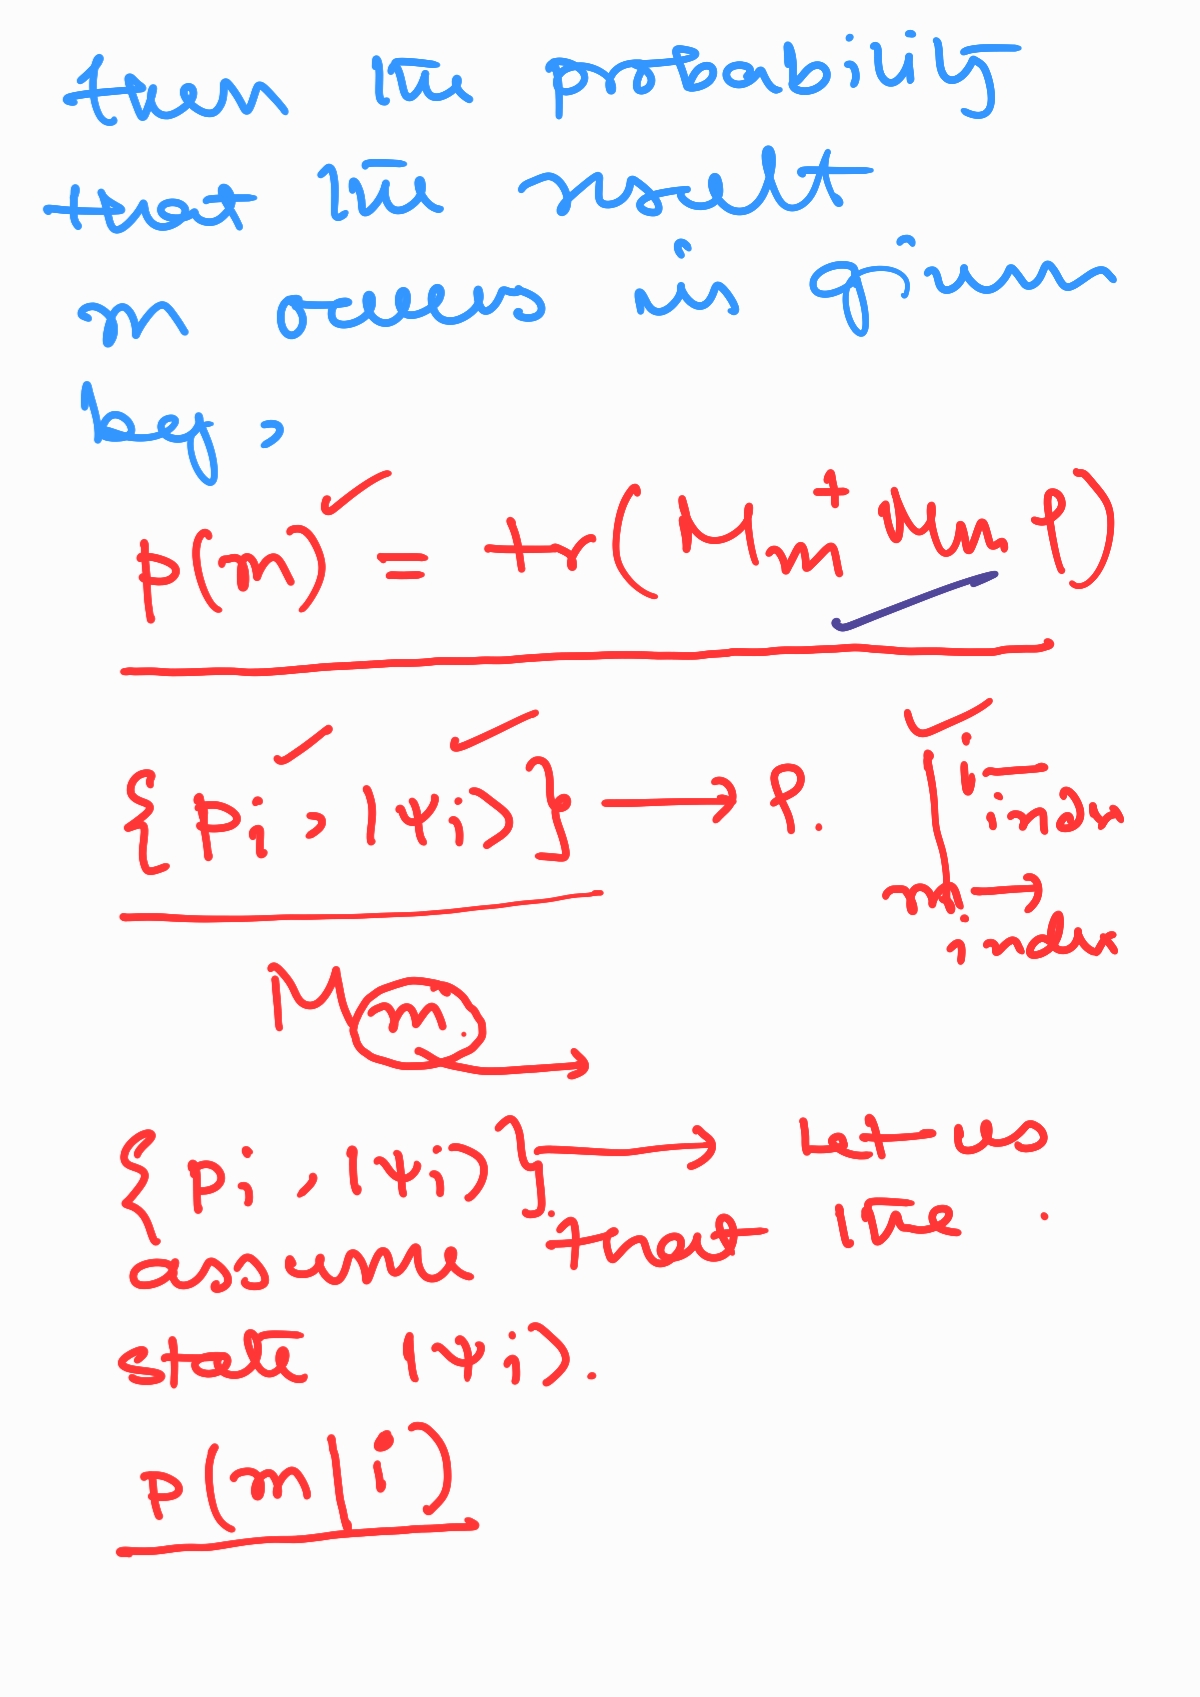 then the probability
that the result
m occurs is given
by,
p(m) = tr(M_m^† M_m ρ)
{p_i, |ψ_i⟩} → ρ.
i – index
m → index
M_m →
{p_i, |ψ_i⟩}. → Let us
assume that the
state |ψ_i⟩.
p(m|i)